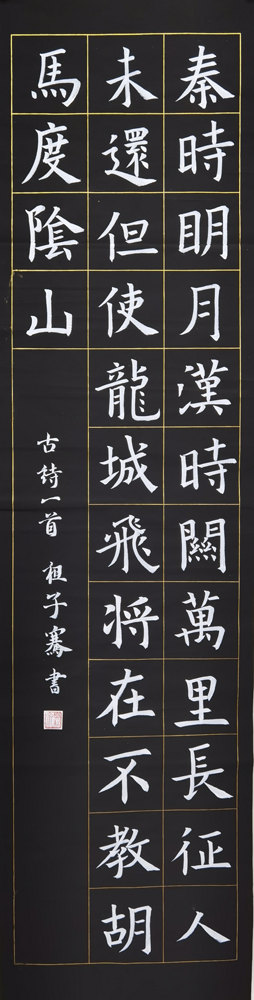 秦時明月漢時關萬里長征人
未還但使龍城飛将在不教胡
馬度陰山
古詩一首 祖子騫書